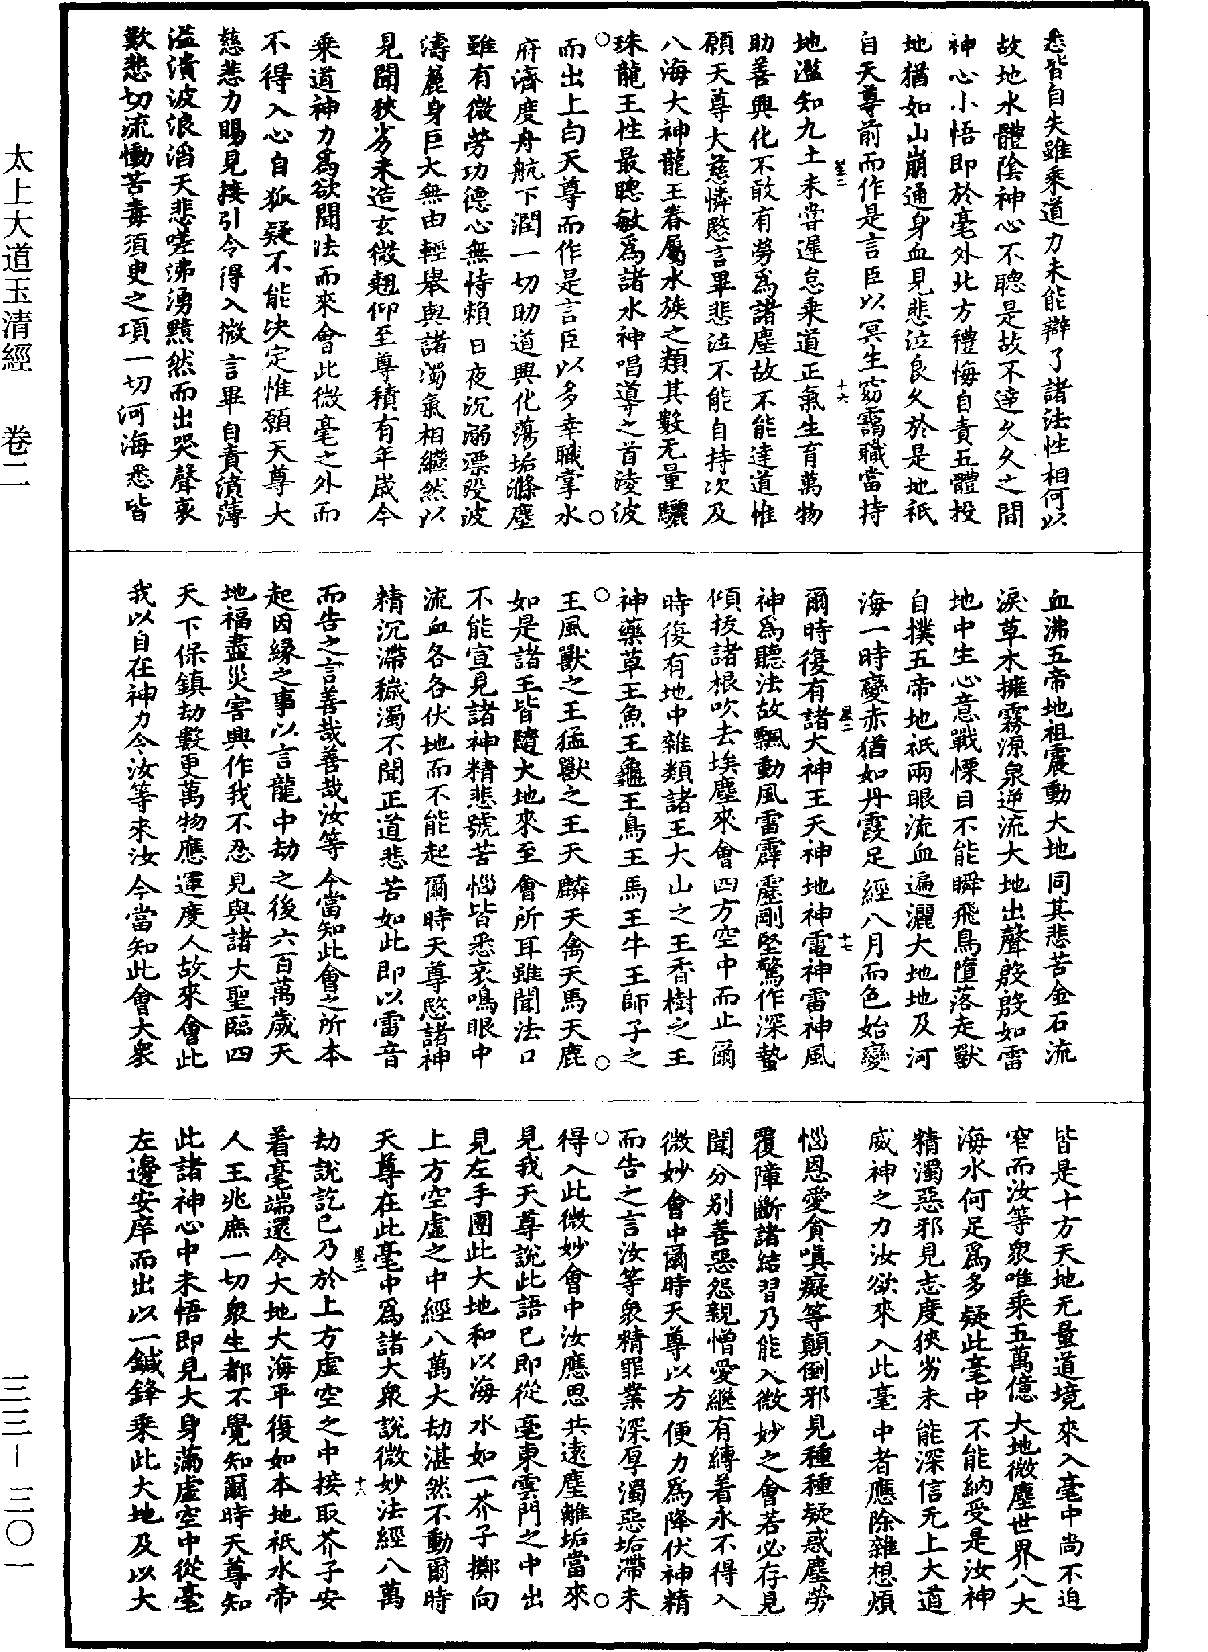 太上大道玉清經　卷二
三三—三〇一
悉皆自失雖乘道力未能辯了諸法性相何以
故地水體陰神心不聰是故不達久久之間
神心小悟即於毫外北方禮悔自責五體投
地猶如山崩通身血見悲泣良久於是地祇
自天尊前而作是言臣以冥生竊霑職當持
地濫知九土未嘗遲怠乘道正氣生育萬物
助善興化不敢有勞為諸塵故不能達道惟
願天尊大慈憐愍言畢悲泣不能自持次及
八海大神龍王眷屬水族之類其數无量驪
珠龍王性最聰敏為諸水神唱導之首淩波
而出上白天尊而作是言臣以多幸職掌水
府濟度舟航下潤一切助道興化蕩垢滌塵
雖有微勞功德心無恃賴日夜沉溺漂殁波
濤麤身巨大無由輕舉與諸濁氣相繼然以
見聞狹劣未造玄微翹仰至尊積有年歲今
乘道神力為欲聞法而來會此微毫之外而
不得入心自狐疑不能決定惟願天尊大
慈慧力賜見接引令得入微言畢自責濆薄
溢漬波浪滔天悲嗟沸湧黯然而出哭聲哀
歎悲切流慟苦毒須臾之項一切河海悉皆
血沸五帝地祖震動大地同其悲苦金石流
淚草木擁霧源泉逆流大地出聲殷殷如雷
地中生心意戰慄目不能瞬飛鳥墮落走獸
自撲五帝地祇兩眼流血遍灑大地地及河
海一時變赤猶如丹霞足經八月而色始變
爾時復有諸大神王天神地神電神雷神風
神為聽法故飄動風雷霹靂剛堅驚作深蟄
傾拔諸根吹去埃塵來會四方空中而止爾
時復有地中雜類諸王大山之王香樹之王
神藥草王魚王龜王鳥王馬王牛王師子之
王風獸之王猛獸之王天麟天禽天馬天鹿
如是諸王皆隨大地來至會所耳雖聞法口
不能宣見諸神精悲號苦惱皆悉哀鳴眼中
流血各各伏地而不能起爾時天尊愍諸神
精沉滯穢濁不聞正道悲苦如此即以雷音
而告之言善哉善哉汝等今當知此會之所本
起因緣之事以言龍中劫之後六百萬歲天
地福盡災害興作我不忍見與諸大聖臨四
天下保鎮劫數更萬物應運度人故來會此
我以自在神力令汝等來汝今當知此會大衆
皆是十方天地无量道境來入毫中尚不迫
窄而汝等衆唯乘五萬億大地微塵世界八大
海水何足為多疑此毫中不能納受是汝神
精濁惡邪見志度狹劣未能深信无上大道
威神之力汝欲來入此毫中者應除雜想煩
惱恩愛貪嗔癡等顛倒邪見種種疑惑塵勞
覆障斷諸結習乃能入微妙之會若必存見
聞分別善惡怨親憎愛繼有縛着永不得入
微妙會中爾時天尊以方便力為降伏神精
而告之言汝等衆精罪業深厚濁惡垢滯未
得入此微妙會中汝應思共遠塵離垢當來
見我天尊說此語已即從毫東雲門之中出
見左手團此大地和以海水如一芥子擲向
上方空虛之中經八萬大劫湛然不動爾時
天尊在此毫中為諸大衆說微妙法經八萬
劫說訖已乃於上方虛空之中接取芥子安
着毫端還令大地大海平復如本地祇水帝
人王兆庶一切衆生都不覺知爾時天尊知
此諸神心中未悟即見大身滿虛空中從毫
左邊安庠而出以一鍼鋒乘此大地及以大